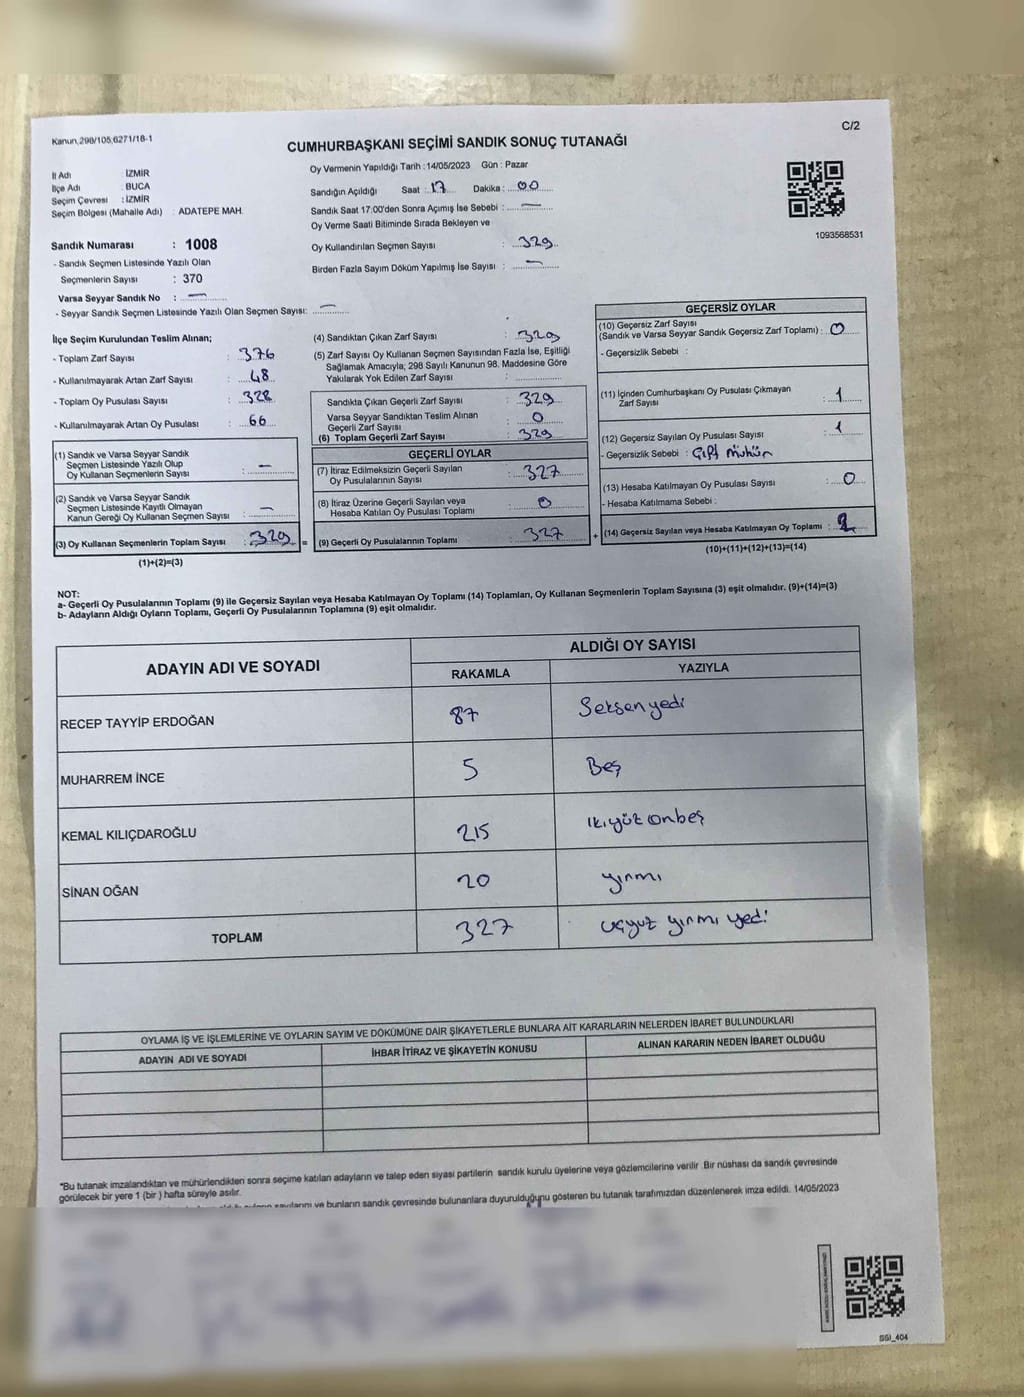 Kanun,298/105,6271/18-1
C/2
CUMHURBAŞKANI SEÇİMİ SANDIK SONUÇ TUTANAĞI
Oy Vermenin Yapıldığı Tarih : 14/05/2023 Gün : Pazar
İl Adı : İZMİR
İlçe Adı : BUCA
Seçim Çevresi : İZMİR
Seçim Bölgesi (Mahalle Adı) : ADATEPE MAH.
Sandığın Açıldığı Saat : 17 Dakika : 00
Sandık Saat 17:00'den Sonra Açımış İse Sebebi : —
Oy Verme Saati Bitiminde Sırada Bekleyen ve
Oy Kullandırılan Seçmen Sayısı : 329
Birden Fazla Sayım Döküm Yapılmış İse Sayısı : —
1093568531
Sandık Numarası : 1008
- Sandık Seçmen Listesinde Yazılı Olan
Seçmenlerin Sayısı : 370
Varsa Seyyar Sandık No : —
- Seyyar Sandık Seçmen Listesinde Yazılı Olan Seçmen Sayısı: —
İlçe Seçim Kurulundan Teslim Alınan;
- Toplam Zarf Sayısı : 376
- Kullanılmayarak Artan Zarf Sayısı : 48
- Toplam Oy Pusulası Sayısı : 328
- Kullanılmayarak Artan Oy Pusulası : 66
(1) Sandık ve Varsa Seyyar Sandık
Seçmen Listesinde Yazılı Olup
Oy Kullanan Seçmenlerin Sayısı : —
(2) Sandık ve Varsa Seyyar Sandık
Seçmen Listesinde Kayıtlı Olmayan
Kanun Gereği Oy Kullanan Seçmen Sayısı : —
(3) Oy Kullanan Seçmenlerin Toplam Sayısı : 329 =
(1)+(2)=(3)
(4) Sandıktan Çıkan Zarf Sayısı : 329
(5) Zarf Sayısı Oy Kullanan Seçmen Sayısından Fazla İse, Eşitliği
Sağlamak Amacıyla; 298 Sayılı Kanunun 98. Maddesine Göre
Yakılarak Yok Edilen Zarf Sayısı :
Sandıkta Çıkan Geçerli Zarf Sayısı : 329
Varsa Seyyar Sandıktan Teslim Alınan
Geçerli Zarf Sayısı : 0
(6) Toplam Geçerli Zarf Sayısı : 329
GEÇERLİ OYLAR
(7) İtiraz Edilmeksizin Geçerli Sayılan
Oy Pusulalarının Sayısı : 327
(8) İtiraz Üzerine Geçerli Sayılan veya
Hesaba Katılan Oy Pusulası Toplamı : 0
(9) Geçerli Oy Pusulalarının Toplamı : 327 +
GEÇERSİZ OYLAR
(10) Geçersiz Zarf Sayısı
(Sandık ve Varsa Seyyar Sandık Geçersiz Zarf Toplamı) : 0
- Geçersizlik Sebebi :
(11) İçinden Cumhurbaşkanı Oy Pusulası Çıkmayan
Zarf Sayısı : 1
(12) Geçersiz Sayılan Oy Pusulası Sayısı : 1
- Geçersizlik Sebebi : Çift Mühür
(13) Hesaba Katılmayan Oy Pusulası Sayısı : 0
- Hesaba Katılmama Sebebi :
(14) Geçersiz Sayılan veya Hesaba Katılmayan Oy Toplamı : 2
(10)+(11)+(12)+(13)=(14)
NOT:
a- Geçerli Oy Pusulalarının Toplamı (9) ile Geçersiz Sayılan veya Hesaba Katılmayan Oy Toplamı (14) Toplamları, Oy Kullanan Seçmenlerin Toplam Sayısına (3) eşit olmalıdır. (9)+(14)=(3)
b- Adayların Aldığı Oyların Toplamı, Geçerli Oy Pusulalarının Toplamına (9) eşit olmalıdır.
ADAYIN ADI VE SOYADI
ALDIĞI OY SAYISI
RAKAMLA YAZIYLA
RECEP TAYYİP ERDOĞAN 87 Seksenyedi
MUHARREM İNCE 5 Beş
KEMAL KILIÇDAROĞLU 215 İkiyüz onbeş
SİNAN OĞAN 20 yirmi
TOPLAM 327 üçyüz yirmi yedi
OYLAMA İŞ VE İŞLEMLERİNE VE OYLARIN SAYIM VE DÖKÜMÜNE DAİR ŞİKAYETLERLE BUNLARA AİT KARARLARIN NELERDEN İBARET BULUNDUKLARI
ADAYIN ADI VE SOYADI İHBAR İTİRAZ VE ŞİKAYETİN KONUSU ALINAN KARARIN NEDEN İBARET OLDUĞU
"Bu tutanak imzalandıktan ve mühürlendikten sonra seçime katılan adayların ve talep eden siyasi partilerin sandık kurulu üyelerine veya gözlemcilerine verilir. Bir nüshası da sandık çevresinde
görülecek bir yere 1 (bir ) hafta süreyle asılır.
sayılarını ve bunların sandık çevresinde bulunanlara duyurulduğunu gösteren bu tutanak tarafımızdan düzenlenerek imza edildi. 14/05/2023